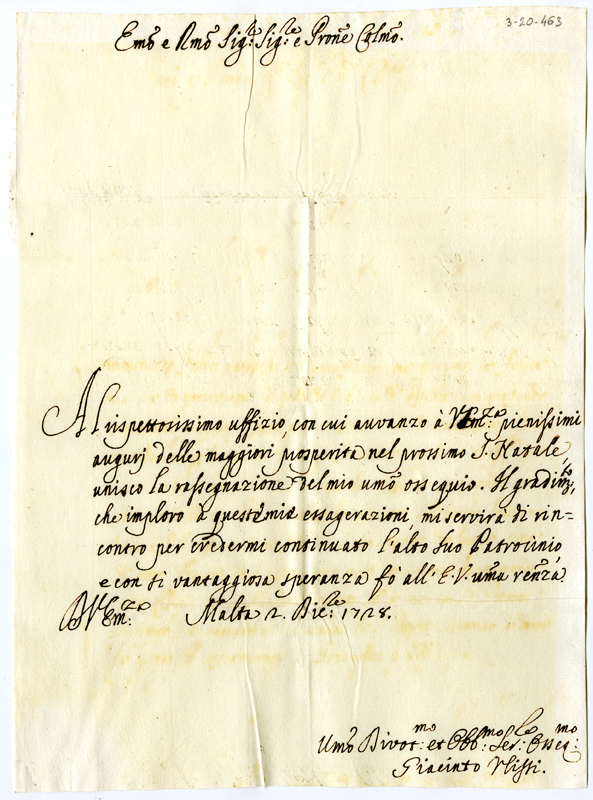 3-20-463
Emo e Rmo Sig:re Sig:re e Prone Colmo.
Al rispettosissimo uffizio, con cui auuanzo à VEm:za pienissimi
augurj delle maggiori prosperita nel prossimo S. Natale,
unisco la rassegnazione del mio umo ossequio. Il gradim:to,
che imploro à queste mie essagerazioni, mi servirà di rin=
contro per credermi continuato l'alto suo Patrocinio,
e con si vantaggiosa speranza fò all' E.V. uma renza
DVEm:za Malta 2. Bie:re 1728.
Umo Divot:mo et Obb:mo Ser:re Osseq:mo
Giacinto Ulissi.